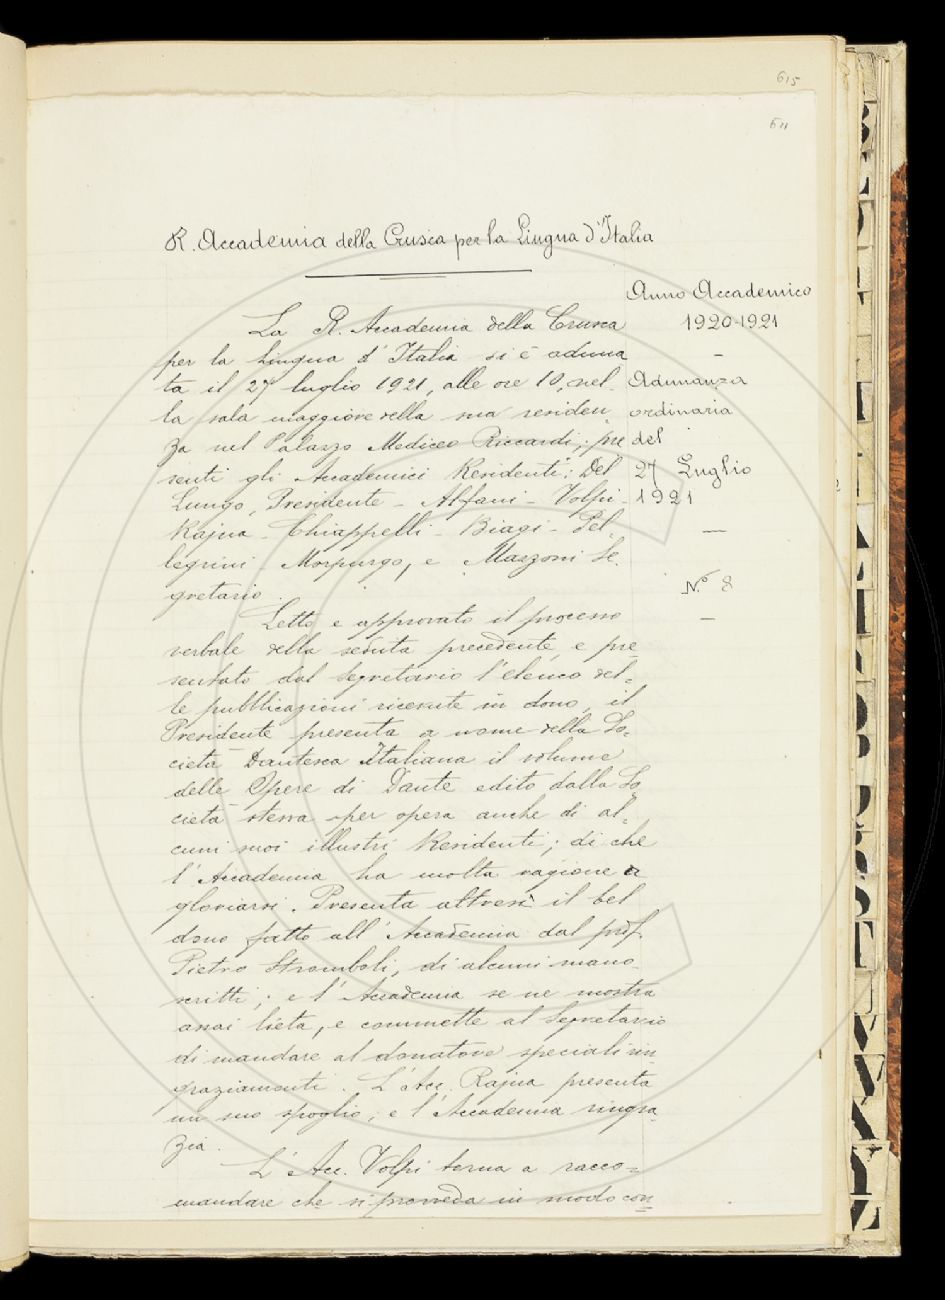 615
611
R. Accademia della Crusca per la Lingua d'Italia
Anno Accademico
1920-1921
Adunanza
ordinaria
del
27 Luglio
1921
N.° 8
La R. Accademia della Crusca
per la Lingua d'Italia si è aduna
ta il 27 luglio 1921, alle ore 10, nel-
la sala maggiore della sua residen
za nel Palazzo Mediceo Riccardi; pre
senti gli Accademici Residenti: Del
Lungo, Presidente - Alfani - Volpi -
Rajna - Chiappelli - Biagi - Pel-
legrini - Morpurgo, e Mazzoni Se-
gretario.
Letto e approvato il processo
verbale della seduta precedente, e pre=
sentato dal Segretario l'elenco del=
le pubblicazioni ricevute in dono, il
Presidente presenta a nome della So=
cietà Dantesca Italiana il volume
delle Opere di Dante edito dalla So
cietà stessa per opera anche di al=
cuni suoi illustri Residenti; di che
l'Accademia ha molta ragione a
gloriarsi. Presenta altresì il bel
dono fatto all'Accademia dal prof.
Pietro Stromboli, di alcuni mano-
scritti; e l'Accademia se ne mostra
assai lieta, e commette al Segretario
di mandare al donatore speciali rin-
graziamenti. L'Acc. Rajna presenta
un suo spoglio; e l'Accademia ringra-
zia.
L'Acc. Volpi torna a racco=
mandare che si provveda in modo con=